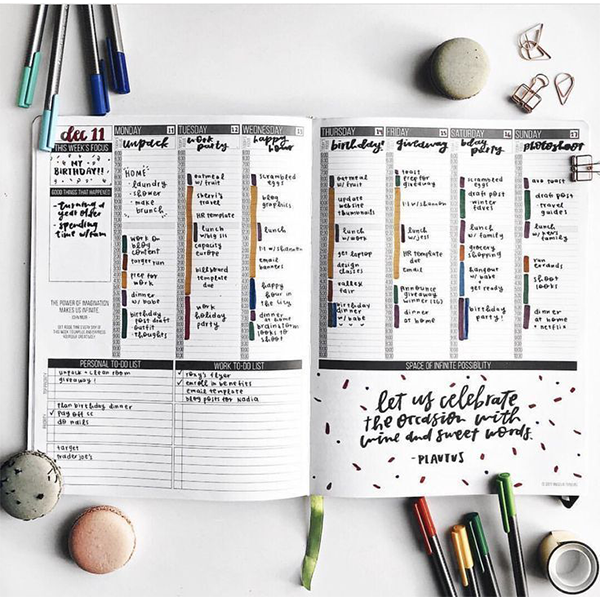 dec 11
THIS WEEK'S FOCUS
MY
BIRTHDAY!!
GOOD THINGS THAT HAPPENED
- turning a
year older
- spending
time w/fam
THE POWER OF IMAGINATION
MAKES US INFINITE.
MONDAY 11
unpack
HOME
- laundry
- shower
- make
brunch
work on
blog
content
target run
prep for
work
dinner
w/ babe
birthday
post draft
- outfit
- thoughts
TUESDAY 12
work
party
oatmeal
w/ fruit
sheri's
travel
HR template
lunch
w/ big sis
capacity
europe
billboard
template
due
work
holiday
party
WEDNESDAY 13
happy
hour
scrambled
eggs
blog
graphics
lunch
1:1 w/ shanan
email
banners
happy
hour in
the city
dinner
at home
brainstorm
looks to
shoot
THURSDAY 14
birthday!
oatmeal
w/ fruit
update
website
thumbnails
lunch
w/ work
get laptop
design
classes
rallex
fair
birthday
dinner
w/ babe
FRIDAY 15
giveaway
toast
prep for
giveaway
1:1 w/ shanan
lunch
w/ jess
HR template
due
email
announce
giveaway
dinner
at home
SATURDAY 16
bday
party
scrambled
eggs
draft post
winter
faves
lunch
w/ family
grocery
shopping
hangout
w/ babe
birthday
party!
SUNDAY 17
photoshoot
avo toast
draft post
travel
guides
lunch
w/ fam
errands
shoot
looks
dinner
at home
+ netflix
PERSONAL TO-DO LIST
unpack + clean room
giveaway!
plan birthday dinner
✓ pay off cc
do nails
target
trader joe's
WORK TO-DO LIST
roxy's flyer
✓ enroll in benefits
email template
blog posts for nadia
SPACE OF INFINITE POSSIBILITY
let us celebrate
the occasion with
wine and sweet words.
- PLAUTUS